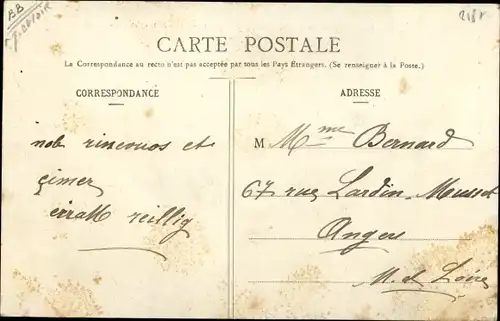 BB
218r
CARTE POSTALE
La Correspondance au recto n'est pas acceptée par tous les Pays Étrangers. (Se renseigner à la Poste.)
CORRESPONDANCE
nob rincouos et
çimer
erraM reillig
ADRESSE
M Mme Bernard
67 rue Lardin Musset
Angers
M. et Loire